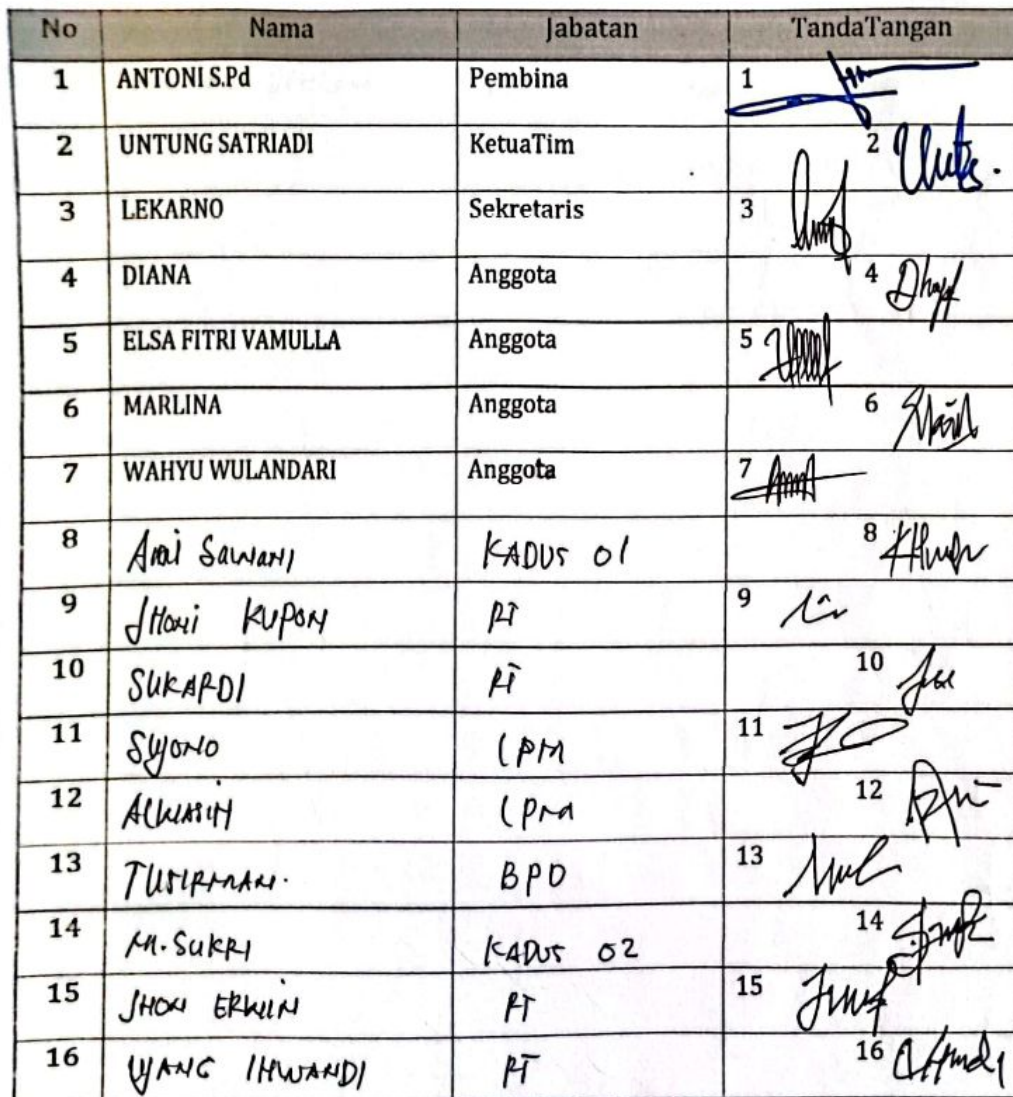 No Nama Jabatan TandaTangan
1 ANTONI S.Pd Pembina 1
2 UNTUNG SATRIADI KetuaTim 2
3 LEKARNO Sekretaris 3
4 DIANA Anggota 4
5 ELSA FITRI VAMULLA Anggota 5
6 MARLINA Anggota 6
7 WAHYU WULANDARI Anggota 7
8 KADUS 01 8
9 JHONI KUPON RT 9
10 SUKARDI RT 10
11 SUJONO LPM 11
12 ALWASIH LPM 12
13 TUSIRMAN. BPD 13
14 M. SUKRI KADUS 02 14
15 JHON ERWIN RT 15
16 UJANG IHWANDI RT 16